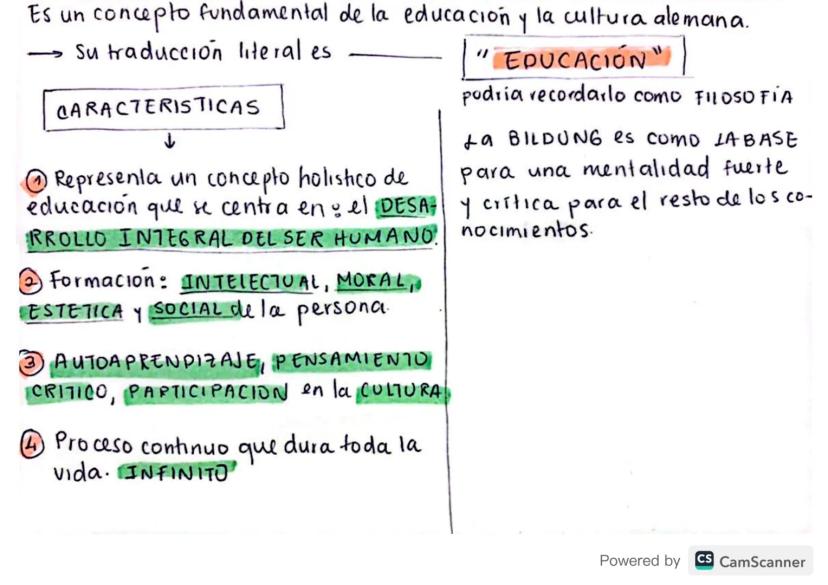 Es un concepto fundamental de la educación y la cultura alemana.
→ Su traducción literal es ——— "EDUCACIÓN"
CARACTERISTICAS
↓
① Representa un concepto holistico de
educación que se centra en: el DESA-
RROLLO INTEGRAL DEL SER HUMANO.
② Formación: INTELECTUAL, MORAL,
ESTETICA y SOCIAL de la persona.
③ AUTOAPRENDIZAJE, PENSAMIENTO
CRITICO, PARTICIPACION en la CULTURA
④ Proceso continuo que dura toda la
vida. INFINITO
podria recordarlo como FILOSOFÍA
La BILDUNG es como LA BASE
para una mentalidad fuerte
y crítica para el resto de los co-
nocimientos.
Powered by CS CamScanner